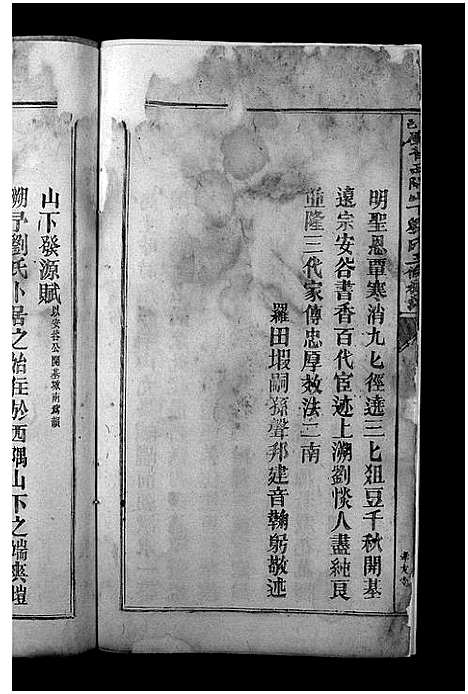 明聖恩覃寒消九匕徑達三匕狙豆千秋開基
遠宗安谷書香百代宦迹上溯劉惔人盡純良
並隆三代家傳忠厚敎法二南
羅田塅嗣孫聲邦建音鞠躬敬述
山下發源賦
以安谷公開基城南爲韻
朔予劉氏卜居之始在於西隅山下之端爽塏